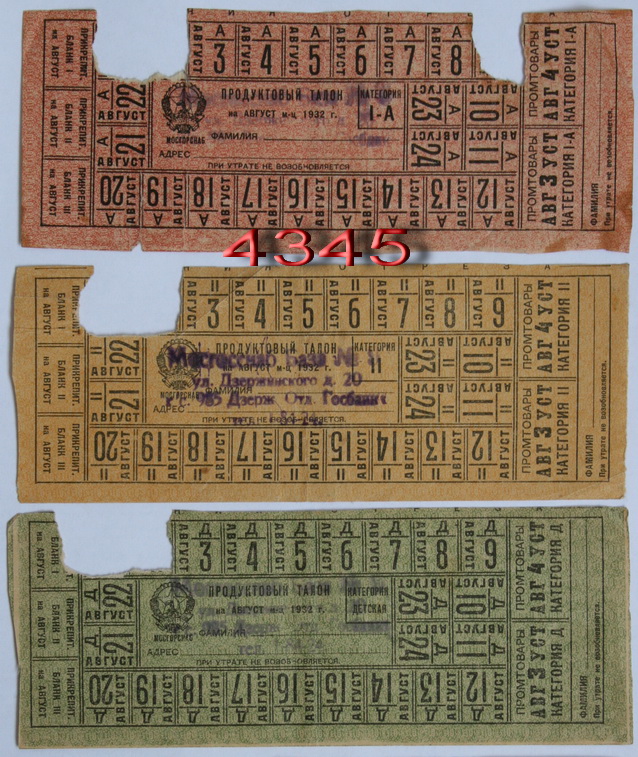 А А А А А А
АВГУСТ АВГУСТ АВГУСТ АВГУСТ АВГУСТ АВГУСТ
3 4 5 6 7 8
ПРИКРЕПИТ.
БЛАНК I
на АВГУСТ
ПРИКРЕПИТ.
БЛАНК II
на АВГУСТ
ПРИКРЕПИТ.
БЛАНК III
на АВГУСТ
А
АВГУСТ
22
А
АВГУСТ
21
МОСГОРСНАБ
ПРОДУКТОВЫЙ ТАЛОН
на АВГУСТ м-ц 1932 г.
КАТЕГОРИЯ
I-А
ФАМИЛИЯ
АДРЕС
ПРИ УТРАТЕ НЕ ВОЗОБНОВЛЯЕТСЯ
АВГУСТ
23
А
АВГУСТ
10
А
АВГУСТ
24
А
АВГУСТ
11
А
20 19 18 17 16 15 14 13 12
АВГУСТ АВГУСТ АВГУСТ АВГУСТ АВГУСТ АВГУСТ АВГУСТ АВГУСТ АВГУСТ
А А А А А А А А А
ПРОМТОВАРЫ
АВГ 4 УСТ
КАТЕГОРИЯ I-А
ПРОМТОВАРЫ
АВГ 3 УСТ
КАТЕГОРИЯ I-А
ФАМИЛИЯ
При утрате не возобновляется.
4345
II II II II II II II
АВГУСТ АВГУСТ АВГУСТ АВГУСТ АВГУСТ АВГУСТ АВГУСТ
3 4 5 6 7 8 9
ПРИКРЕПИТ.
БЛАНК I
на АВГУСТ
ПРИКРЕПИТ.
БЛАНК II
на АВГУСТ
ПРИКРЕПИТ.
БЛАНК III
на АВГУСТ
II
АВГУСТ
22
II
АВГУСТ
21
МОСГОРСНАБ
ПРОДУКТОВЫЙ ТАЛОН
на АВГУСТ м-ц 1932 г.
КАТЕГОРИЯ
II
ФАМИЛИЯ
АДРЕС
ПРИ УТРАТЕ НЕ ВОЗОБНОВЛЯЕТСЯ
База №
ул. Дзержинского д. 20
Дзерж. Отд. Госбанка
АВГУСТ
23
II
АВГУСТ
10
II
АВГУСТ
24
II
АВГУСТ
11
II
20 19 18 17 16 15 14 13 12
АВГУСТ АВГУСТ АВГУСТ АВГУСТ АВГУСТ АВГУСТ АВГУСТ АВГУСТ АВГУСТ
II II II II II II II II II
ПРОМТОВАРЫ
АВГ 4 УСТ
КАТЕГОРИЯ II
ПРОМТОВАРЫ
АВГ 3 УСТ
КАТЕГОРИЯ II
ФАМИЛИЯ
При утрате не возобновляется.
Д Д Д Д Д Д Д
АВГУСТ АВГУСТ АВГУСТ АВГУСТ АВГУСТ АВГУСТ АВГУСТ
3 4 5 6 7 8 9
БЛАНК I
на АВГУСТ
ПРИКРЕПИТ.
БЛАНК II
на АВГУСТ
ПРИКРЕПИТ.
БЛАНК III
на АВГУСТ
Д
АВГУСТ
22
Д
АВГУСТ
21
МОСГОРСНАБ
ПРОДУКТОВЫЙ ТАЛОН
на АВГУСТ м-ц 1932 г.
КАТЕГОРИЯ
ДЕТСКАЯ
ФАМИЛИЯ
АДРЕС
ПРИ УТРАТЕ НЕ ВОЗОБНОВЛЯЕТСЯ.
АВГУСТ
23
Д
АВГУСТ
10
Д
АВГУСТ
24
Д
АВГУСТ
11
Д
20 19 18 17 16 15 14 13 12
АВГУСТ АВГУСТ АВГУСТ АВГУСТ АВГУСТ АВГУСТ АВГУСТ АВГУСТ АВГУСТ
Д Д Д Д Д Д Д Д Д
ПРОМТОВАРЫ
АВГ 4 УСТ
КАТЕГОРИЯ Д
ПРОМТОВАРЫ
АВГ 3 УСТ
КАТЕГОРИЯ Д
ФАМИЛИЯ
При утрате не возобновляется.